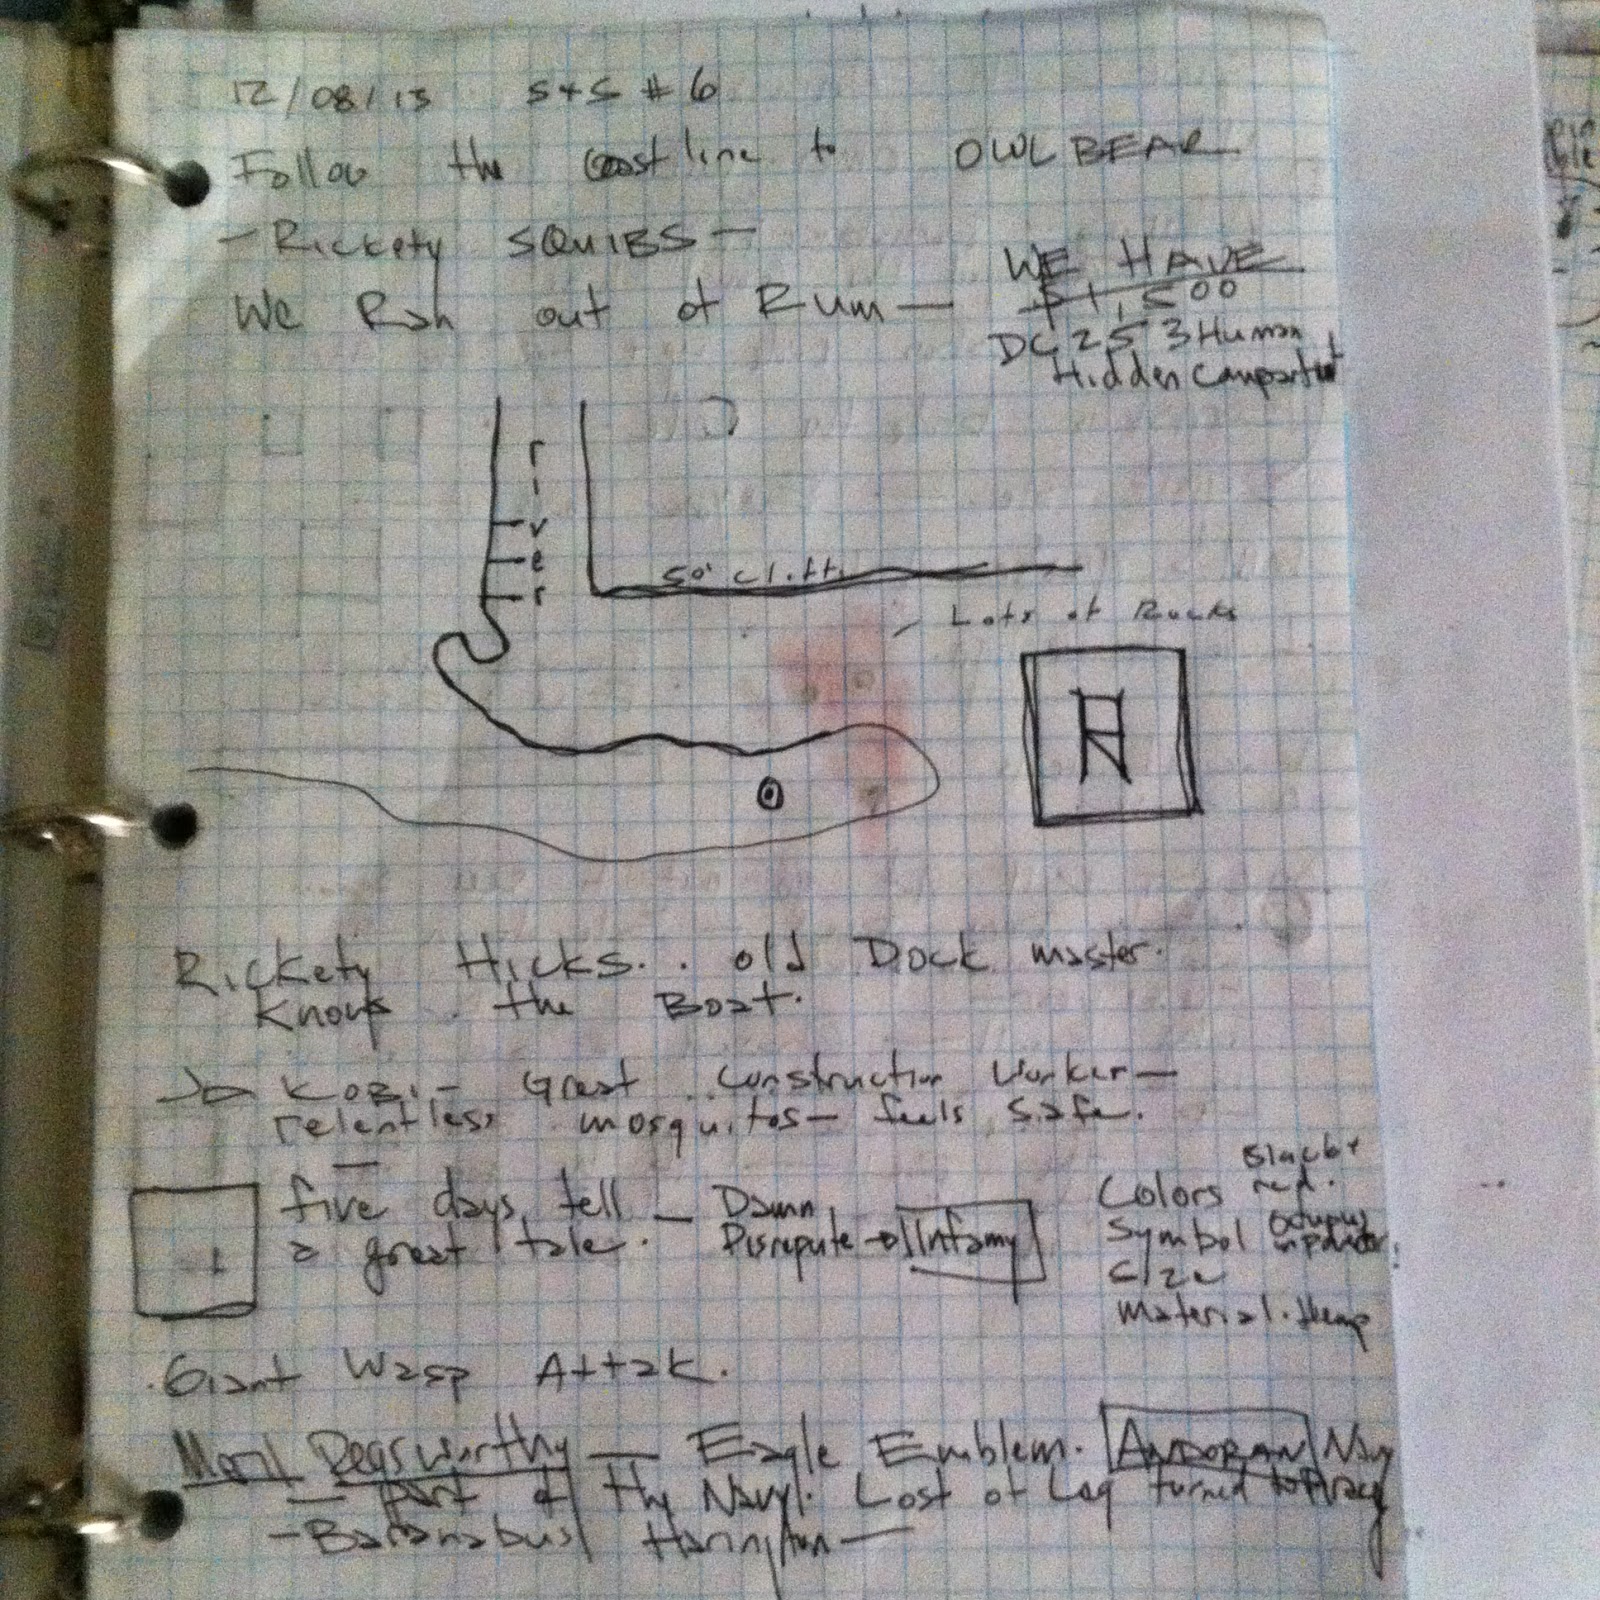 12/08/13 S+S #6
Follow the coast line to OWLBEAR
- Rickety SQUIBS -
We Ran out of Rum —
WE HAVE
$1,500
DC 25 3 Human
Hidden Compartment
river
50' cliff
- Lots of Rocks
Rickety Hicks.. old Dock master.
Knows the Boat.
KOBI - Great construction worker -
relentless mosquitos - feels safe.
five days, tell
a great tale. — Damn,
Disrepute → Infamy
Colors Black + red.
Symbol Octupus
Size
Material. Hemp
Giant Wasp Attak.
Regsworthy — Eagle Emblem. ANDORAN Navy
- part of the Navy. Lost of Leg turned to Piracy
- Baranabus Harington —